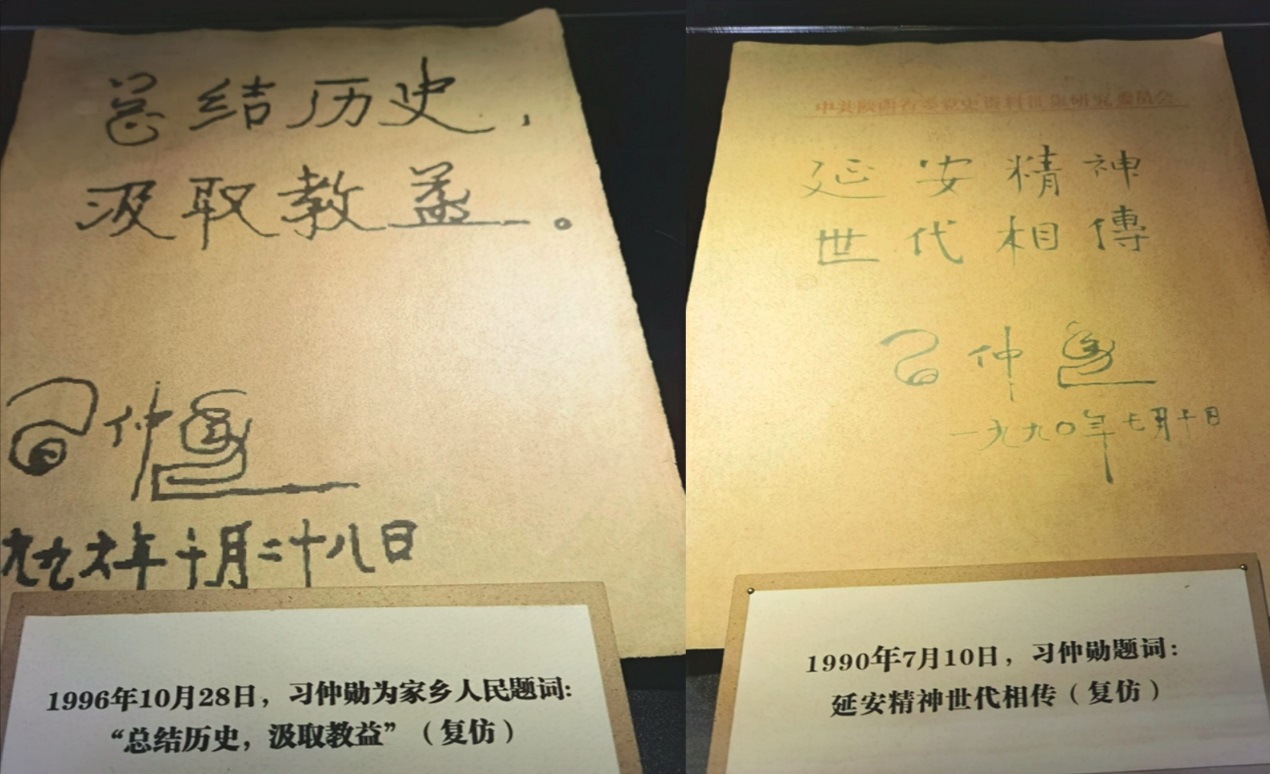 总结历史，
汲取教益。
习仲勋
九九六年十月二十八日
1996年10月28日，习仲勋为家乡人民题词：
“总结历史，汲取教益”（复仿）
中共陕西省委党史资料征集研究委员会
延安精神
世代相傳
习仲勋
一九九〇年七月十日
1990年7月10日，习仲勋题词：
延安精神世代相传（复仿）